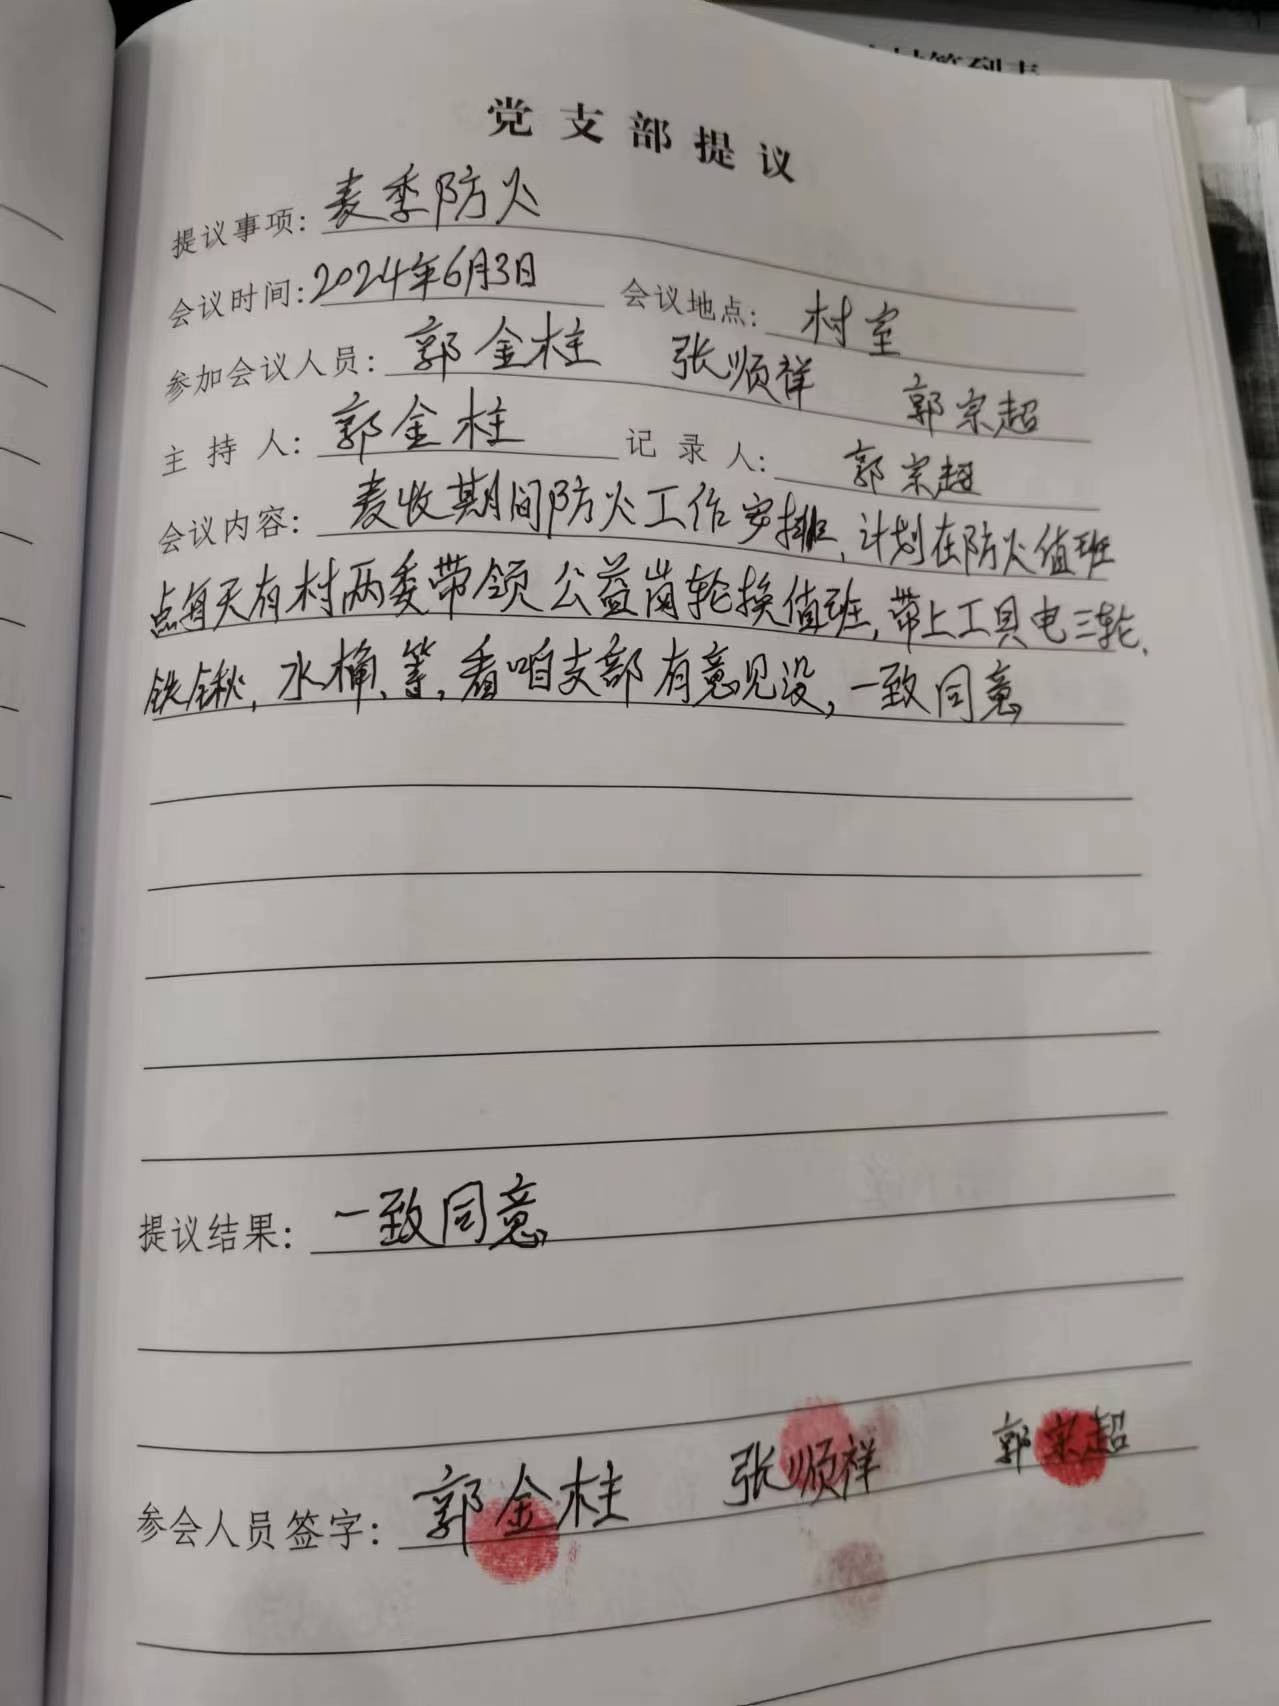 村签到表
党支部提议
提议事项：麦季防火
会议时间：2024年6月3日 会议地点：村室
参加会议人员：郭金柱 张顺祥 郭宗超
主持人：郭金柱 记录人：郭宗超
会议内容：麦收期间防火工作安排，计划在防火值班
点每天有村两委带领公益岗轮换值班，带上工具电三轮、
铁锹，水桶、等，看咱支部有意见没，一致同意
提议结果：一致同意
参会人员签字：郭金柱 张顺祥 郭宗超